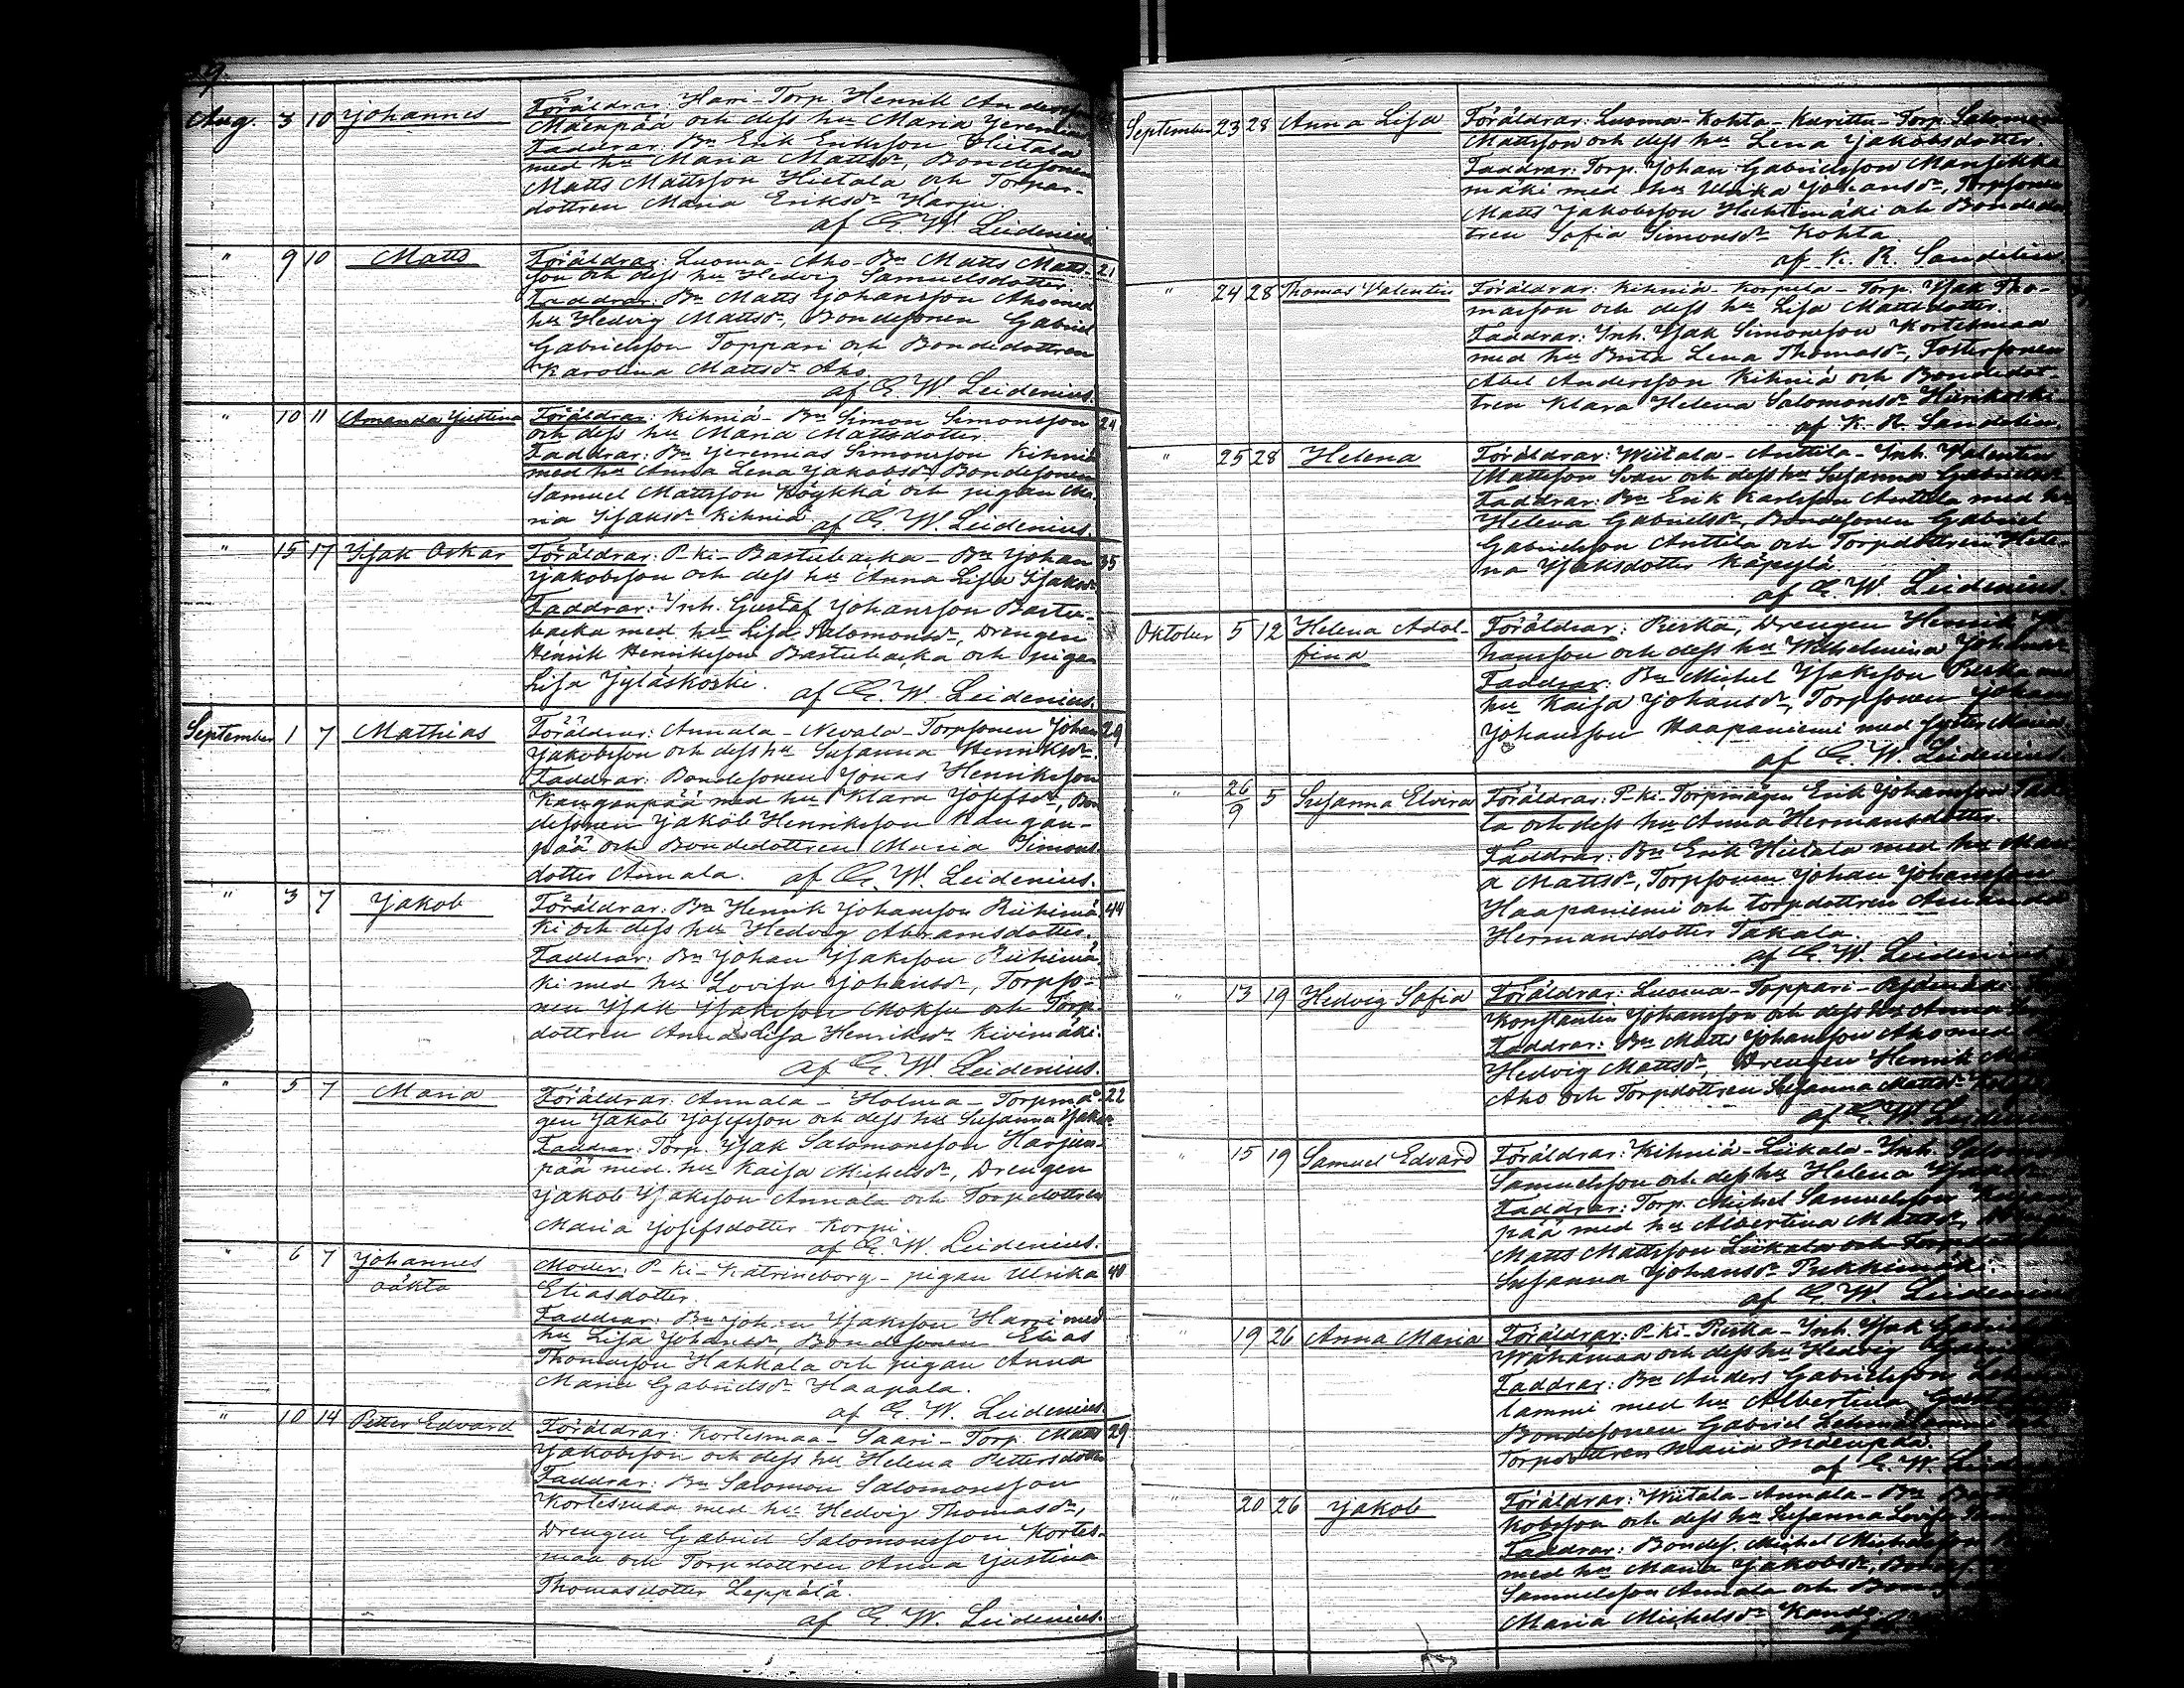 Aug. 3 10 Johannes Föräldrar: Harri-Torp. Henrik Andersson
Mäenpää och dess hu Maria Jeremiasd
Faddrar: Bn Erik Eriksson Hietala
med hu Maria Mattsdr, Bondesonen
Matts Mattsson Hietala och Torpar-
dottren Maria Eriksdr Harju.
af G. W. Leidenius.
" 9 10 Matts Föräldrar: Luoma-Aho-Bn Matts Matts- 21
son och dess hu Hedvig Samuelsdotter.
Faddrar: Bn Matts Johansson Aho med
hu Hedvig Mattsdr, Bondesonen Gabriel
Gabrielsson Toppari och Bondedottren
Karolina Mattsdr Aho.
af G. W. Leidenius.
" 10 11 Amanda Justina Föräldrar: Kihniä-Bn Simon Simonsson 24
och dess hu Maria Mattsdotter
Faddrar: Bn Jeremias Simonsson Kihniä
med hu Anna Lena Jakobsdr, Bondesonen
Samuel Mattsson Köykkä och pigan Ma-
ria Isaksdr Kihniä af G. W. Leidenius.
" 15 17 Isak Oskar Föräldrar: P-ki-Bastubacka-Bn Johan 35
Jakobsson och dess hu Anna Lisa Isaksdr
Faddrar: Inh. Gustaf Johansson Bastu-
backa med hu Lisa Salomonsdr, Drengen
Henrik Henriksson Bastubacka och pigan
Lisa Jyläskoski. af G. W. Leidenius.
September 1 7 Mathias Föräldrar: Annala-Nevala-Torpsonen Johan 29
Jakobsson och dess hu Susanna Henriksdr.
Faddrar: Bondesonen Jonas Henriksson
Kauganpää med hu Klara Josefsdr, Bon
desonen Jakob Henriksson Kaugan-
pää och Bondedottren Maria Simons-
dotter Annala. af G. W. Leidenius.
" 3 7 Jakob Föräldrar: Bn Henrik Johansson Riihimä 44
ki och dess hu Hedvig Abramsdotter.
Faddrar: Bn Johan Isaksson Riihimä-
ki med hu Lovisa Johansdr, Torpso-
nen Isak Isaksson Moksu och Torp-
dottren Anna Lisa Henriksdr Kivimäki.
af G. W. Leidenius.
" 5 7 Maria Föräldrar: Annala-Holma-Torpmå- 22
gen Jakob Josefsson och dess hu Susanna Isaksdr
Faddrar: Torp. Isak Salomonsson Harjun-
pää med hu Kaisa Michelsdr, Drengen
Jakob Isaksson Annala och Torpdottren
Maria Josefsdotter Korpi.
af G. W. Leidenius.
" 6 7 Johannes Moder: P-ki-Katrineborg-pigan Ulrika 40
oäkta Eliasdotter.
Faddrar: Bn Johan Isaksson Harri med
hu Lisa Johansdr, Bondesonen Elias
Thomasson Hakkala och pigan Anna
Maria Gabrielsdr Haapala.
af G. W. Leidenius.
" 10 14 Petter Edvard Föräldrar: Kortesmaa-Saari-Torp. Matts 29
Jakobsson och dess hu Helena Pettersdotter
Faddrar: Bn Salomon Salomonsson
Kortesmaa med hu Hedvig Thomasdr,
Drengen Gabriel Salomonsson Kortes-
maa och Torpdottren Anna Justina
Thomasdotter Leppälä.
af G. W. Leidenius.
September 23 28 Anna Lisa Föräldrar: Luoma-Kohta-Kurittu-Torp. Salomon
Mattsson och dess hu Lena Jakobsdotter.
Faddrar: Torp. Johan Gabrielsson Mansikka
mäki med hu Ulrika Johansdr, Torpsonen
Matts Jakobsson Huhtimäki och Bondedot
tren Sofia Simonsdr Kohta
af K. R. Sandelin.
" 24 28 Thomas Valentin Föräldrar: Kihniä-Korpela-Torp. Isak Tho-
masson och dess hu Lisa Mattsdotter.
Faddrar: Inh. Isak Simonsson Kortesmaa
med hu Brita Lena Thomasdr, Fostersonen
Abel Andersson Kihniä och Bondedot-
tren Klara Helena Salomonsdr
af K. R. Sandelin.
" 25 28 Helena Föräldrar: Wiitala-Anttila-Inh. Valentin
Mattsson Svan och dess hu Susanna Gabrielsdr
Faddrar: Bn Erik Karlsson Anttila med hu
Helena Gabrielsdr, Bondesonen Gabriel
Gabrielsson Anttila och Torpdottren Hele-
na Isaksdotter Käpylä
af G. W. Leidenius.
Oktober 5 12 Helena Adol- Föräldrar: Riska, Drengen Henrik Jo
fina hansson och dess hu Wilhelmina Johansdr
Faddrar: Bn Michel Isaksson Riska med
hu Kaisa Johansdr, Torpsonen Johan
Johansson Haapaniemi med syster Maria.
af G. W. Leidenius.
" 26/9 5 Susanna Elvira Föräldrar: P-ki-Torpmågen Erik Johansson Taka
la och dess hu Anna Hermansdotter.
Faddrar: Bn Erik Hietala med hu Mari
a Mattsdr, Torpsonen Johan Johansson
Haapaniemi och torpdottren Amanda
Hermansdotter Takala.
af G. W. Leidenius
" 13 19 Hedvig Sofia Föräldrar: Luoma-Toppari-
Konstantin Johansson och dess hu Anna
Faddrar: Bn Matts Johansson Aho med
Hedvig Mattsdr, Drengen Henrik
Aho och Torpdottren Susanna Mattsdr
af G. W. Leidenius
" 15 19 Samuel Edvard Föräldrar: Kihniä-Liikala-Inh. Salomon
Samuelsson och dess hu Helena
Faddrar: Torp. Michel Samuelsson
pää med hu Albertina Mattsdr,
Matts Mattsson Liikala och
Susanna Johansdr Pukkimäki.
af G. W. Leidenius
" 19 26 Anna Maria Föräldrar: P-ki-Riska-Inh. Isak
Wähämaa och dess hu Hedvig
Faddrar: Bn Anders Gabrielsson
lammi med hu Albertina
Bondesonen Gabriel
Torpdottren Maria Mäenpää.
af G. W.
" 20 26 Jakob Föräldrar: Wiitala-Annala-Bn
kobsson och dess hu Susanna Lovisa
Faddrar: Bondes. Michel Michelsson
med hu Maria Jakobsdr,
Samuelsson Annala och
Maria Michelsdr